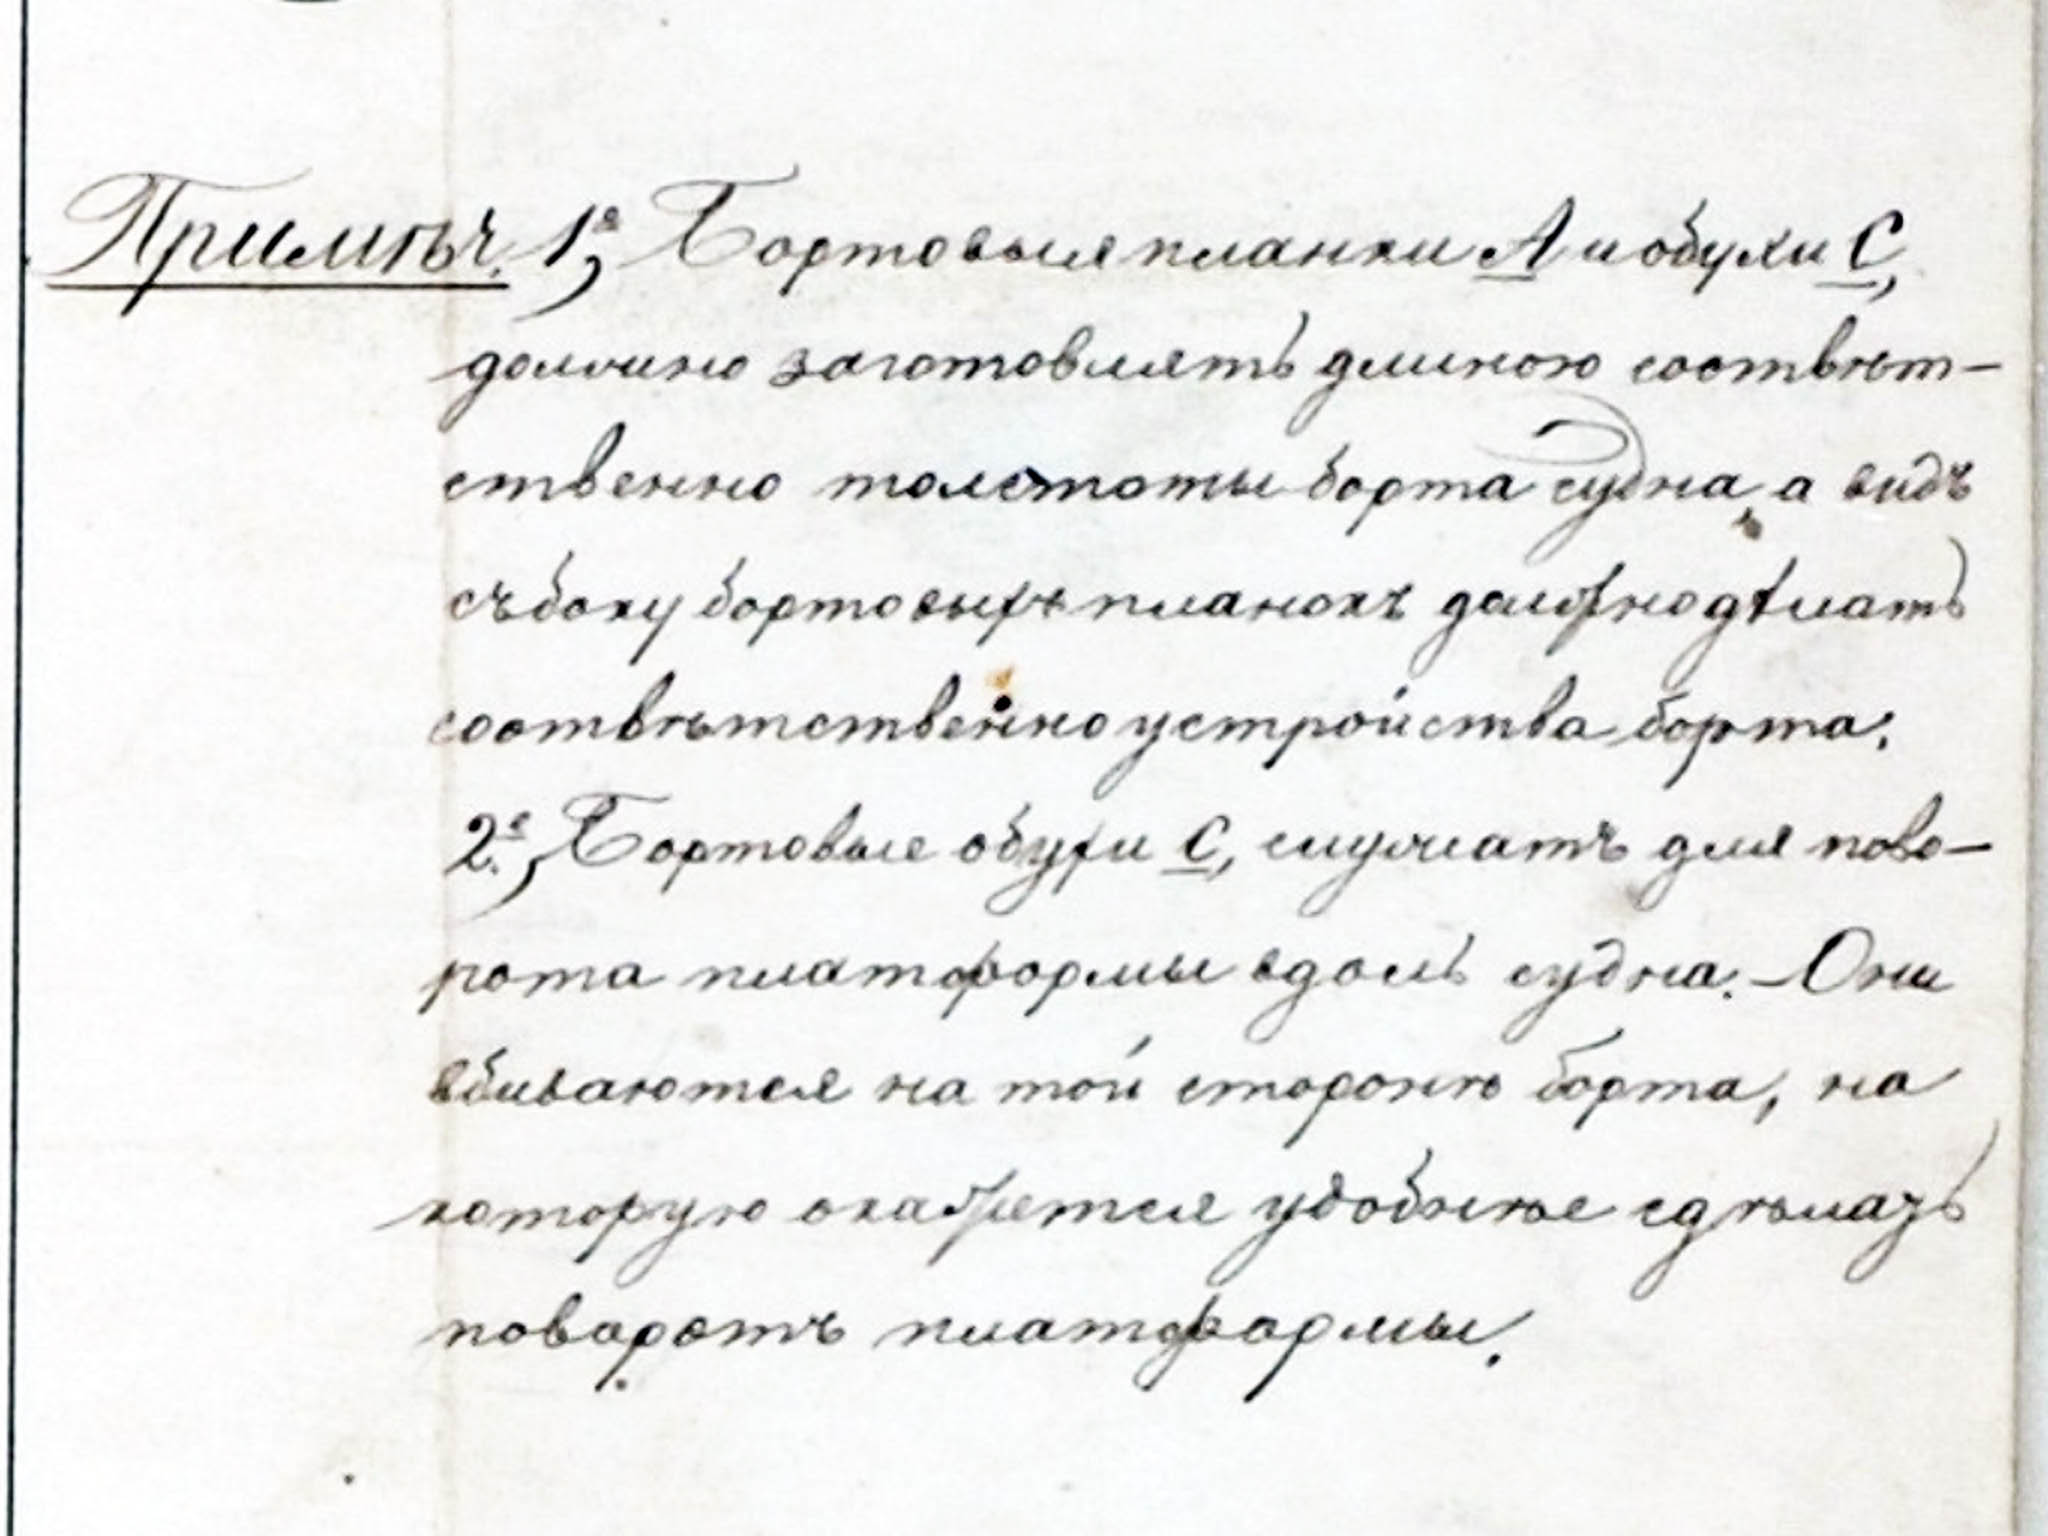 Примѣч. 1е, Бортовыя планки А и обухи С,
должно заготовлять длиною соотвѣт-
ственно толстоты борта судна, а видъ
съ боку бортовыхъ планокъ должно дѣлать
соотвѣтственно устройства борта.
2е, Бортовые обухи С, служатъ для пово-
рота платформы вдоль судна. - Они
вбиваются на той сторонѣ борта, на
которую окажется удобнѣе сдѣлать
поворотъ платформы.